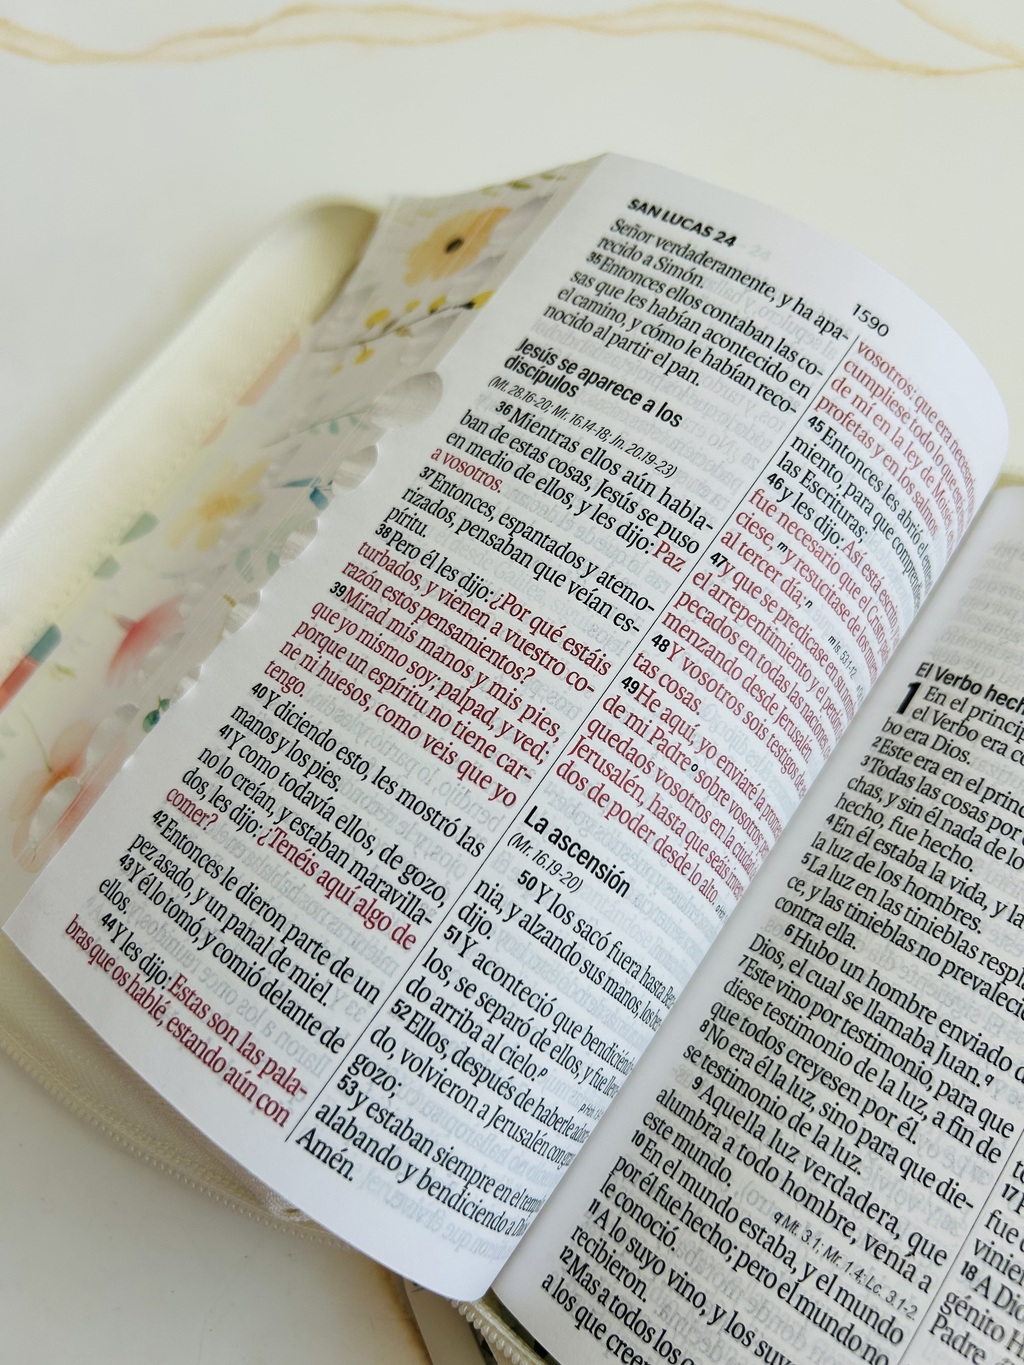 SAN LUCAS 24
1590
Señor verdaderamente, y ha apa-
recido a Simón.
35 Entonces ellos contaban las co-
sas que les habían acontecido en
el camino, y cómo le habían reco-
nocido al partir el pan.
Jesús se aparece a los
discípulos
(Mt. 28.16-20; Mr. 16.14-18; Jn. 20.19-23)
36 Mientras ellos aún habla-
ban de estas cosas, Jesús se puso
en medio de ellos, y les dijo: Paz
a vosotros.
37 Entonces, espantados y atemo-
rizados, pensaban que veían es-
píritu.
38 Pero él les dijo: ¿Por qué estáis
turbados, y vienen a vuestro co-
razón estos pensamientos?
39 Mirad mis manos y mis pies,
que yo mismo soy; palpad, y ved;
porque un espíritu no tiene car-
ne ni huesos, como veis que yo
tengo.
40 Y diciendo esto, les mostró las
manos y los pies.
41 Y como todavía ellos, de gozo,
no lo creían, y estaban maravilla-
dos, les dijo: ¿Tenéis aquí algo de
comer?
42 Entonces le dieron parte de un
pez asado, y un panal de miel.
43 Y él lo tomó, y comió delante de
ellos.
44 Y les dijo: Estas son las pala-
bras que os hablé, estando aún con
vosotros: que era necesario
cumpliese todo lo que está
de mí en la ley de Moisés,
profetas y en los salmos.
45 Entonces les abrió el
miento, para que
las Escrituras;
46 y les dijo: Así está escrito,
fue necesario que el Cristo
ciese, m y resucitase de los
al tercer día, n
47 y que se predicase en su nombre
el arrepentimiento y el perdón
pecados en todas las naciones,
menzando desde Jerusalén.
48 Y vosotros sois testigos de
tas cosas.
49 He aquí, yo enviaré la
de mi Padre o sobre vosotros;
quedaos vosotros en la ciudad
Jerusalén, hasta que seáis
dos de poder desde lo alto.
La ascensión
(Mr. 16.19-20)
50 Y los sacó fuera hasta
nia, y alzando sus manos, los
dijo.
51 Y aconteció que
los, se separó de ellos, y fue
do arriba al cielo. p
52 Ellos, después de haberle
do, volvieron a Jerusalén con
gozo;
53 y estaban siempre en el
alabando y bendiciendo a
Amén.
El Verbo
1 En el
el Verbo era
bo era Dios.
2 Este era en el
3 Todas las cosas por
chas, y sin él nada de lo
hecho, fue hecho.
4 En él estaba la vida, y la
la luz de los hombres.
5 La luz en las tinieblas
ce, y las tinieblas no
contra ella.
6 Hubo un hombre enviado
Dios, el cual se llamaba Juan. q
7 Este vino por testimonio, para que
diese testimonio de la luz, a fin de
que todos creyesen por él.
8 No era él la luz, sino para que die-
se testimonio de la luz.
9 Aquella luz verdadera, que
alumbra a todo hombre, venía a
este mundo.
q Mt. 3.1; Mr. 1.4; Lc. 3.1-2
10 En el mundo estaba, y el mundo
por él fue hecho; pero el mundo no
le conoció.
11 A lo suyo vino, y los
recibieron.
12 Mas a todos los
a los que
17
fue
18 A
génito
Padre,